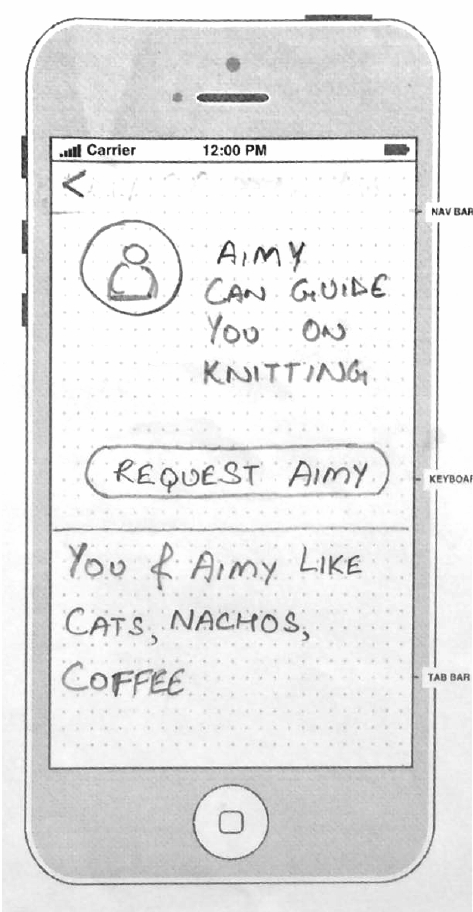 Carrier 12:00 PM
<
NAV BAR
AIMY
CAN GUIDE
YOU ON
KNITTING
REQUEST AIMY
KEYBOAR
YOU & AIMY LIKE
CATS, NACHOS,
COFFEE
TAB BAR